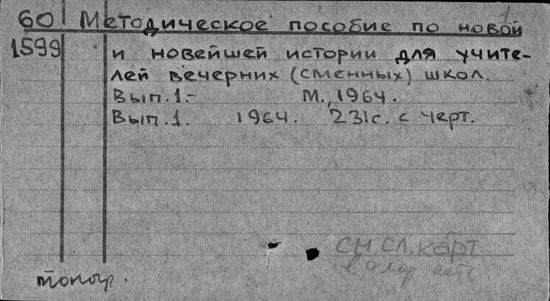 60 Методическое пособие по новой
1599 и новейшей истории для учите-
лей вечерних (сменных) школ.
Вып.1.- М., 1964.
Вып.1. 1964. 231с. с черт.
см. сл. карт.
топогр.